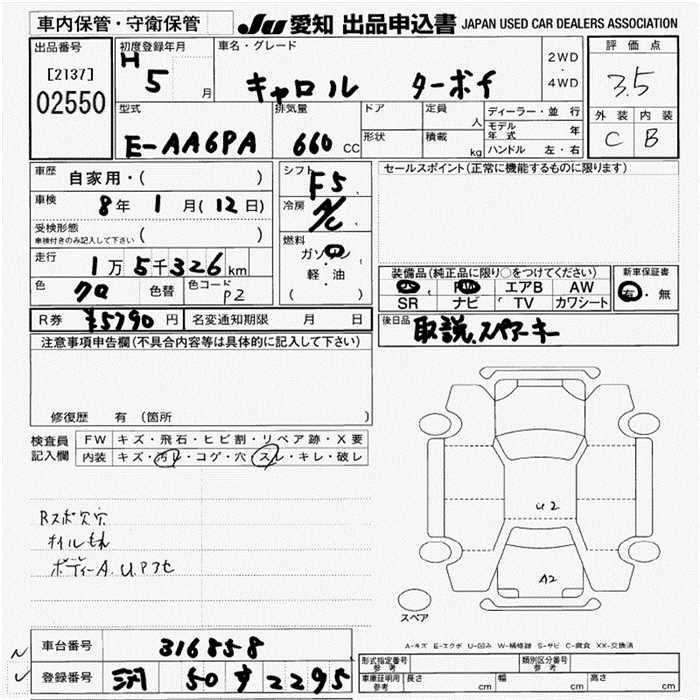 車内保管・守衛保管
JU 愛知 出品申込書 JAPAN USED CAR DEALERS ASSOCIATION
出品番号
[2137]
02550
初度登録年月
H 5 月
車名・グレード
キャロル ターボf
2WD
・
4WD
評価点
3.5
外装 内装
C B
型式
E-AA6PA
排気量
660 CC
ドア
形状
定員
人
積載
kg
ディーラー・並 行
モデル年式 年
ハンドル 左・右
車歴
自家用・( )
車検
8年 1月(12日)
受検形態
車検付きのみ記入して下さい ( )
走行
1万5千326km
色
クロ
色替
色コード
P2
シフト
F5
冷房
A/C
燃料
ガソリン
・
軽・油
( )
セールスポイント(正常に機能するものに限ります)
装備品(純正品に限り○をつけてください)
PS PW エアB AW
SR ナビ TV カワシート
新車保証書
有・無
R券 ¥5790円
名変通知期限 月 日
後日品
取説、スペアーキー
注意事項申告欄(不具合内容等は具体的に記入して下さい)
修復歴 有 (箇所 )
検査員
記入欄
FW キズ・飛石・ヒビ割・リペア跡・X要
内装 キズ・汚レ・コゲ・穴・スレ・キレ・破レ
Rスポ欠穴
オイルもれ
ボディーA.U.Pフセ
U2
A2
スペア
A-キズ E-エクボ U-凹み W-補修跡 S-サビ C-腐食 XX-交換済
車台番号
316858
登録番号
50 す 2295
型式指定番号
参考
類別区分番号
参考
車庫証明用
参考
長さ cm
幅 cm
高さ cm